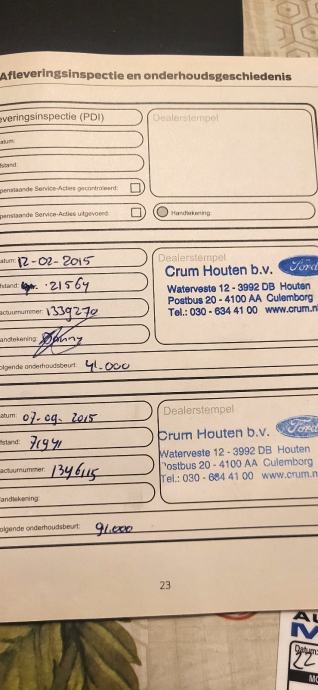 Afleveringsinspectie en onderhoudsgeschiedenis
everingsinspectie (PDI)
Dealerstempel
atum:
stand:
penstaande Service-Acties gecontroleerd:
penstaande Service-Acties uitgevoerd:
Handtekening:
atum: 12-02-2015
Dealerstempel
Crum Houten b.v.
Ford
Waterveste 12 - 3992 DB Houten
Postbus 20 - 4100 AA Culemborg
Tel.: 030 - 634 41 00 www.crum.n
stand: 21564
actuurnummer: 1339270
andtekening:
olgende onderhoudsbeurt: 41.000
atum: 07-09-2015
Dealerstempel
Crum Houten b.v.
Ford
Waterveste 12 - 3992 DB Houten
Postbus 20 - 4100 AA Culemborg
Tel.: 030 - 634 41 00 www.crum.n
stand: 71941
actuurnummer: 1346115
andtekening:
olgende onderhoudsbeurt: 91.000
23
Datum:
22